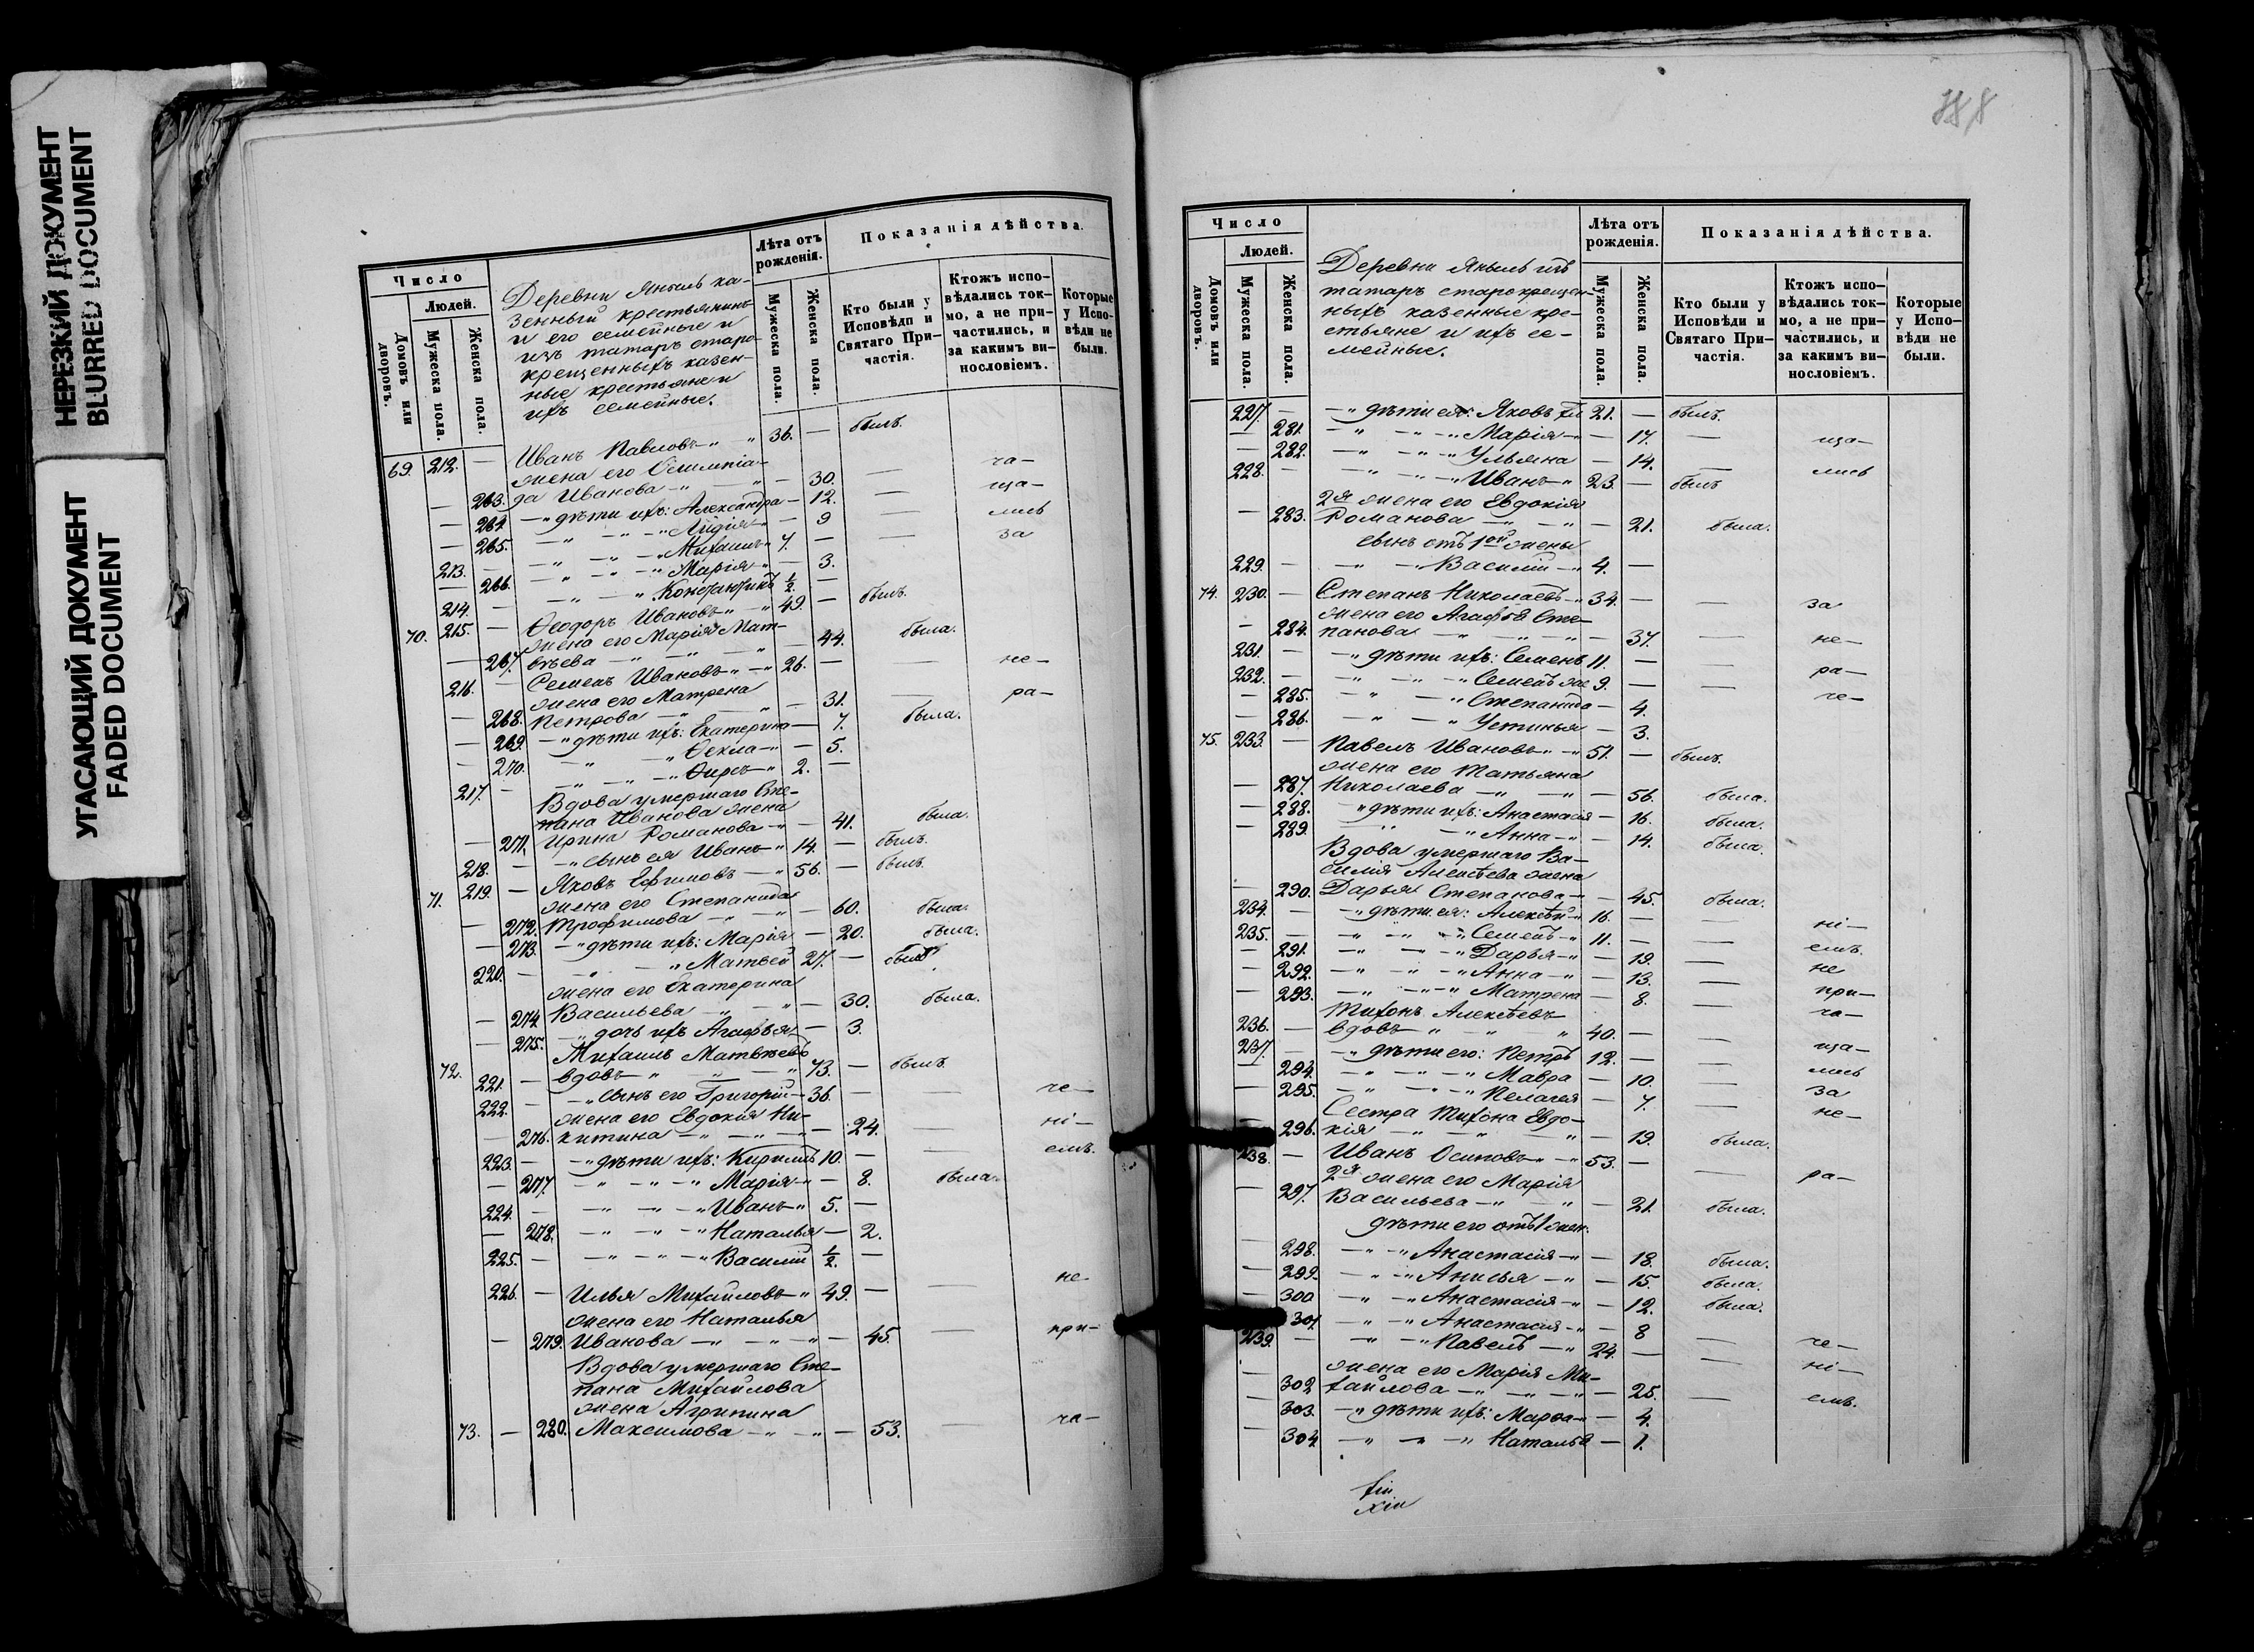 НЕРЕЗКИЙ ДОКУМЕНТ
BLURRED DOCUMENT
УГАСАЮЩИЙ ДОКУМЕНТ
FADED DOCUMENT
Число
Людей.
Домовъ или дворовъ.
Мужеска пола.
Женска пола.
Деревни Яныль ка-
зенный крестьянинъ
и его семейные и
изъ татаръ старо-
крещенныхъ казен-
ные крестьяне и
ихъ семейные.
Лѣта отъ рожденія.
Мужеска пола.
Женска пола.
Показанія дѣйства.
Кто были у Исповѣди и Святаго При-частія.
Ктожъ испо-вѣдались ток-мо, а не при-частились, и за какимъ ви-нословіемъ.
Которые у Испо-вѣди не были.
69. 212. — Иванъ Павловъ 36. — былъ.
жена его Олимпіа-
— 263. да Иванова — 30. — ча-
— 264. дѣти ихъ: Александра — 12. — ща-
— 265. Лидія — 9 — лись
213. — Михаилъ 7. — — за
— 266. Марія — 3.
214. — Константинъ ½ —
70. 215. — Ѳеодоръ Ивановъ 49. — былъ.
жена его Марія Мат-
— 267. вѣева — 44. была.
216. — Семенъ Ивановъ 26. — — не-
жена его Матрена
— 268. Петрова — 31. — ра-
— 269. дѣти ихъ: Екатерина — 7. была.
— 270. Ѳекла — 5.
217. — Ѳирсъ 2. —
Вдова умершаго Сте-
пана Иванова жена
— 271. Ирина Романова — 41. была.
218. — сынъ ея Иванъ 14. — былъ.
71. 219. — Яковъ Ефимовъ 56. — былъ.
жена его Степанида
— 272. Трофимова — 60. была.
— 273. дѣти ихъ: Марія — 20. была.
220. — Матвей 27. — былъ
жена его Екатерина
— 274. Васильева — 30. была.
— 275. дочь ихъ Агафья — 3.
Михаилъ Матвѣевъ
72. 221. — вдовъ 73. — былъ.
222. — сынъ его Григорій 36. — — че-
жена его Евдокія Ни-
— 276. китина — 24. — ні-
223. — дѣти ихъ: Кириллъ 10. — — емъ.
— 277. Марія — 8. была.
224. — Иванъ 5. —
— 278. Наталья — 2.
225. — Василій ½ —
226. — Илья Михайловъ 49. — — не-
жена его Наталья
— 279. Иванова — 45. — при-
Вдова умершаго Сте-
пана Михайлова
жена Агрипина
73. — 280. Максимова — 53. — ча-
Число
Людей.
Домовъ или дворовъ.
Мужеска пола.
Женска пола.
Деревни Яныль изъ
татаръ старокрещен-
ныхъ казенные кре-
стьяне и ихъ се-
мейные.
Лѣта отъ рожденія.
Мужеска пола.
Женска пола.
Показанія дѣйства.
Кто были у Исповѣди и Святаго При-частія.
Ктожъ испо-вѣдались ток-мо, а не при-частились, и за какимъ ви-нословіемъ.
Которые у Испо-вѣди не были.
227. — дѣти ея: Яковъ 21. — былъ.
— 281. Марія — 17. — ща-
— 282. Ульяна — 14. — лись
228. — Иванъ 23. — былъ
2я жена его Евдокія
— 283. Романова — 21. была.
сынъ отъ 1ой жены
229. — Василій 4. —
74. 230. — Степанъ Николаевъ 34. — — за
жена его Агафья Сте-
— 284. панова — 37. — не-
231. — дѣти ихъ: Семенъ 11. — — ра-
232. — Семенъ же 9. — — че-
— 285. Степанида — 4.
— 286. Устинья — 3.
75. 233. — Павелъ Ивановъ 51. — былъ.
жена его Татьяна
— 287. Николаева — 56. была.
— 288. дѣти ихъ: Анастасія — 16. была.
— 289. Анна — 14. была.
Вдова умершаго Ва-
силія Алексѣева жена
— 290. Дарья Степанова — 45. была.
234. — дѣти ея: Алексѣй 16. — — ні-
235. — Семенъ 11. — — емъ.
— 291. Дарья — 19. — не
— 292. Анна — 13. — при-
— 293. Матрена — 8. — ча-
Тихонъ Алексѣевъ
236. — вдовъ 40. — — ща-
237. — дѣти его: Петръ 12. — — лись
— 294. Мавра — 10. — за
— 295. Пелагея — 7. — не-
Сестра Тихона Евдо-
— 296. кія — 19. была.
238. — Иванъ Осиповъ 53. — — ра-
2я жена его Марія
— 297. Васильева — 21. была.
дѣти его отъ 1 жен.
— 298. Анастасія — 18. была.
— 299. Анисья — 15 была.
— 300 Анастасія — 12. была.
— 301. Анастасія — 8 — че-
239. — Павелъ 24. — — ні-
жена его Марія Ми-
— 302 хайлова — 25. — емъ.
— 303. дѣти ихъ: Марѳа — 4.
— 304. Наталья — 1.